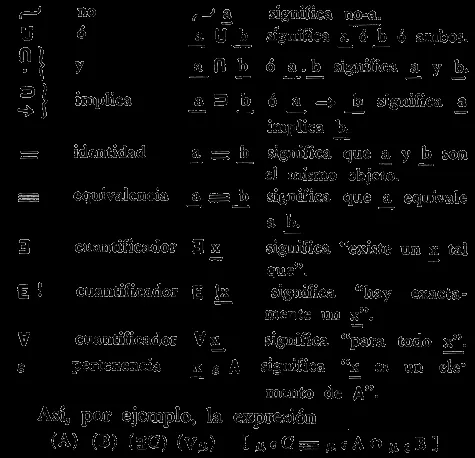 ¬ no ¬ a significa no-a.
∪ ó a ∪ b significa a ó b ó ambos.
∩ . y a ∩ b ó a . b significa a y b.
⊃ → implica a ⊃ b ó a → b significa a
implica b.
= identidad a = b significa que a y b son
el mismo objeto.
≡ equivalencia a ≡ b significa que a equivale
a b.
∃ cuantificador ∃ x significa “existe un x tal
que”.
∃ ! cuantificador ∃ !x significa “hay exacta-
mente un x”.
∀ cuantificador ∀ x significa “para todo x”.
ε pertenencia x ε A significa “x es un ele-
mento de A”.
Así, por ejemplo, la expresión
(A) (B) (∃C) (∀x) [ x ε C ≡ x ε A ∩ x ε B ]